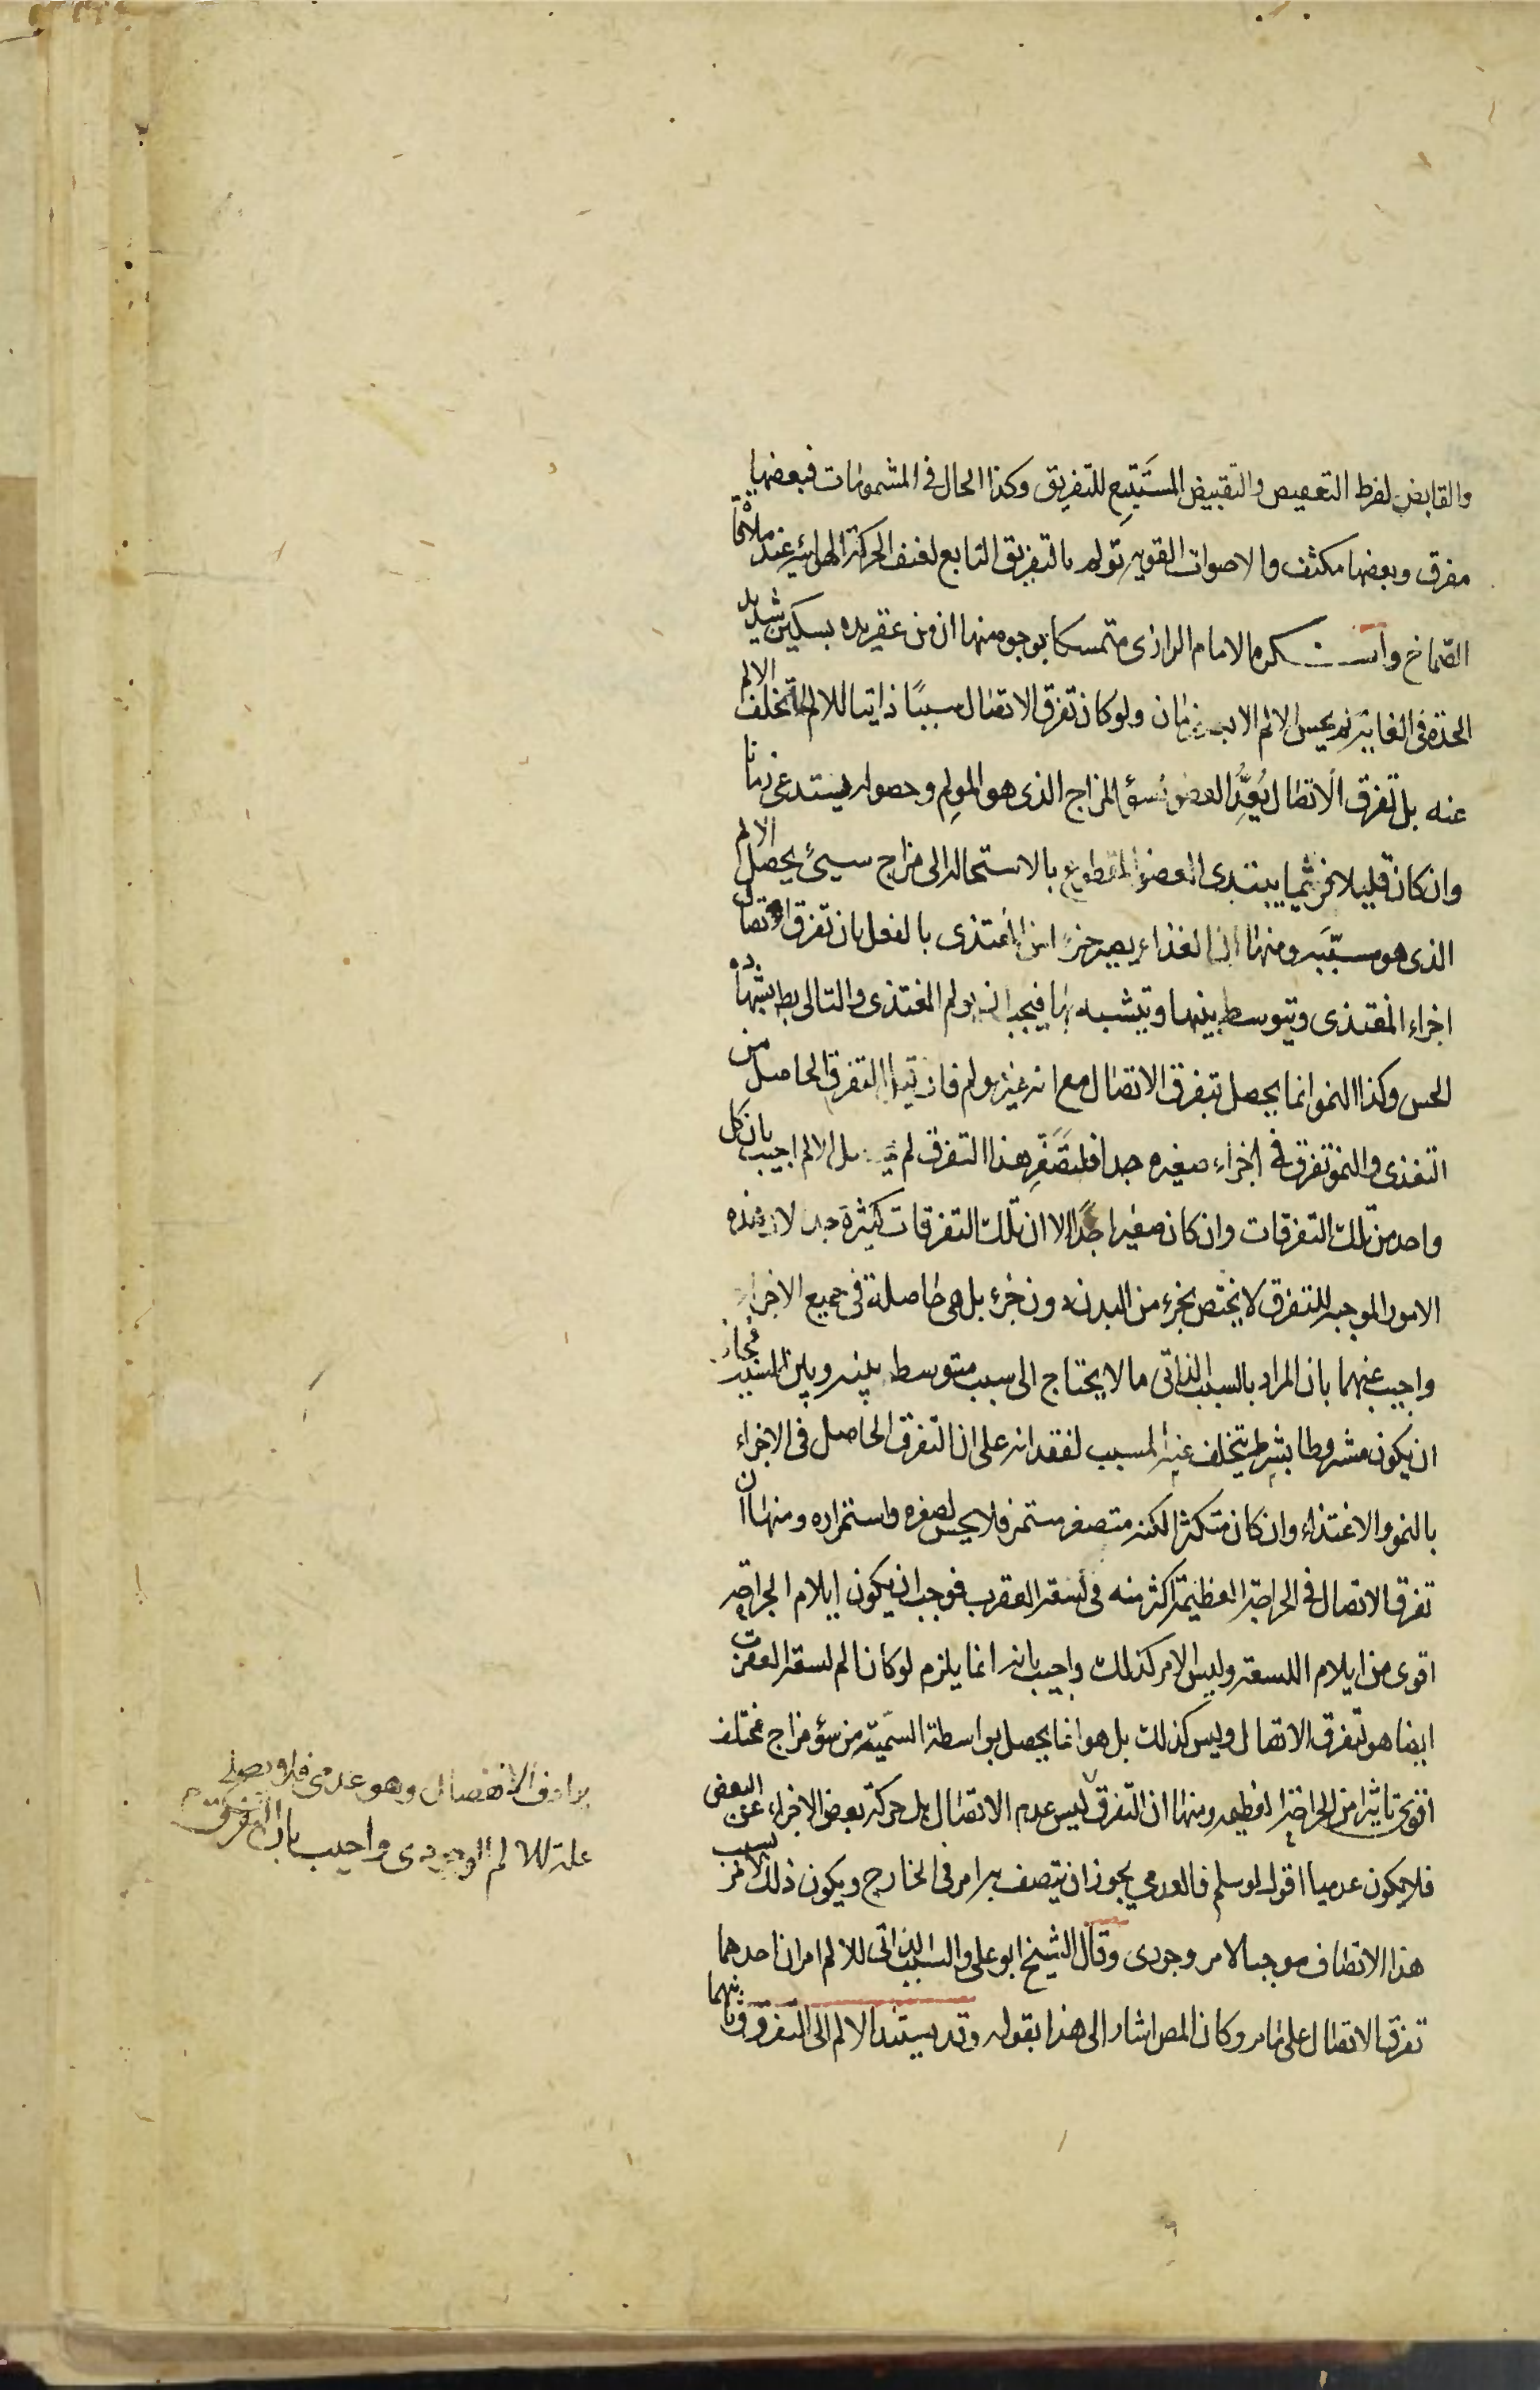 والقابض لفرط التعصيص والتقبيض المستَتبِع للتفريق وكذا الحال فى المشمومات فبعضها
مفرق وبعضها مكثف والاصوات القويه تولم بالتفريق التابع لعنف الحركة الهوائيه عند ملاقاة
الصّماخ وانكره الامام الرازى متمسكا بوجوه منها ان من عقر يده بسكين شديد
الحدة فى الغاية لم يحس الالم الا بعد زمان ولو كان تفرق الاتصال سببًا ذاتيا للالم لما تخلف الالم
عنه بل تفرق الاتصال يُعِدُّ العضو لسؤ المزاج الذى هو المولِم وحصوله يستدعى زمانا
وان كان قليلا فريثما يبتدى العضو المقطوع بالاستحالة الى مزاج سيئ يحصل الالم
الذى هو مسبَّبه ومنها ان الغذاء يصير جزء من المغتذى بالفعل بان تفرق اتصال
اجزاء المغتذى ويتوسط بينها ويتشبه بها فيجب ان يولم المغتذى والتالى بط بشهادة
الحس وكذا النمو انما يحصل بتفرق الاتصال مع انه غير مولم فان قيل التفرق الحاصل من
التغذى والنمو تفرق فى اجزاء صغيره جدا فلتصَغُّر هذا التفرق لم يحصل الالم اجيب بان كل
واحد من تلك التفرقات وان كان صغيرا جدًا الا ان تلك التفرقات كثيرة جدا لان هذه
الامور الموجبه للتفرق لا يختص بجزء من البدن دون جزء بل هى حاصلة فى جميع الاجزاء
واجيب عنهما بان المراد بالسبب الذاتى ما لا يحتاج الى سبب متوسط بينه وبين المسبب فجاز
ان يكون مشروطا بشرط يتخلف عنه المسبب لفقدانه على ان التفرق الحاصل فى الاجزاء
بالنمو والاغتذاء وان كان متكثرا لكنه متصغر مستمر فلا يحس لصغره واستمراره ومنها ان
تفرق الاتصال فى الجراحة العظيمة اكثر منه فى لسعة العقرب فوجب ان يكون ايلام الجراحة
اقوى من ايلام اللسعة وليس الامر كذلك واجيب بانه انما يلزم لو كان الم لسعة العقرب
ايضا هو لتفرق الاتصال وليس كذلك بل هو انما يحصل بواسطة السمّية من سؤ مزاج مختلف
اقوى تاثيرا من الجراحة العظيمه ومنها ان التفرق ليس عدم الاتصال بل حركة بعض الاجزاء عن البعض
فلا يكون عدميا اقول لو سلم فالعدمي يجوز ان يتصف به امر فى الخارج ويكون ذلك الامر بسبب
هذا الاتصاف موجبا لامر وجودى وقال الشيخ ابو على والسبب الذاتى للالم امران احدهما
تفرق الاتصال على ما مر وكان المص اشار الى هذا بقوله وقد يستند الالم الى التفرق وثانيهما
يرادف الانفصال وهو عدمى فلا يصلح
علة للالم الوجودى واجيب بان التفرق